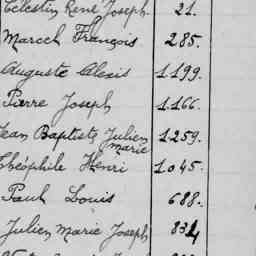 Célestin René Joseph 21.
Marcel François 285.
Auguste Alexis 1.199.
Pierre Joseph 1.166.
Jean Baptiste Julien Marie 1259.
Théophile Henri 1.045.
Paul Louis 688.
Julien Marie Joseph 834